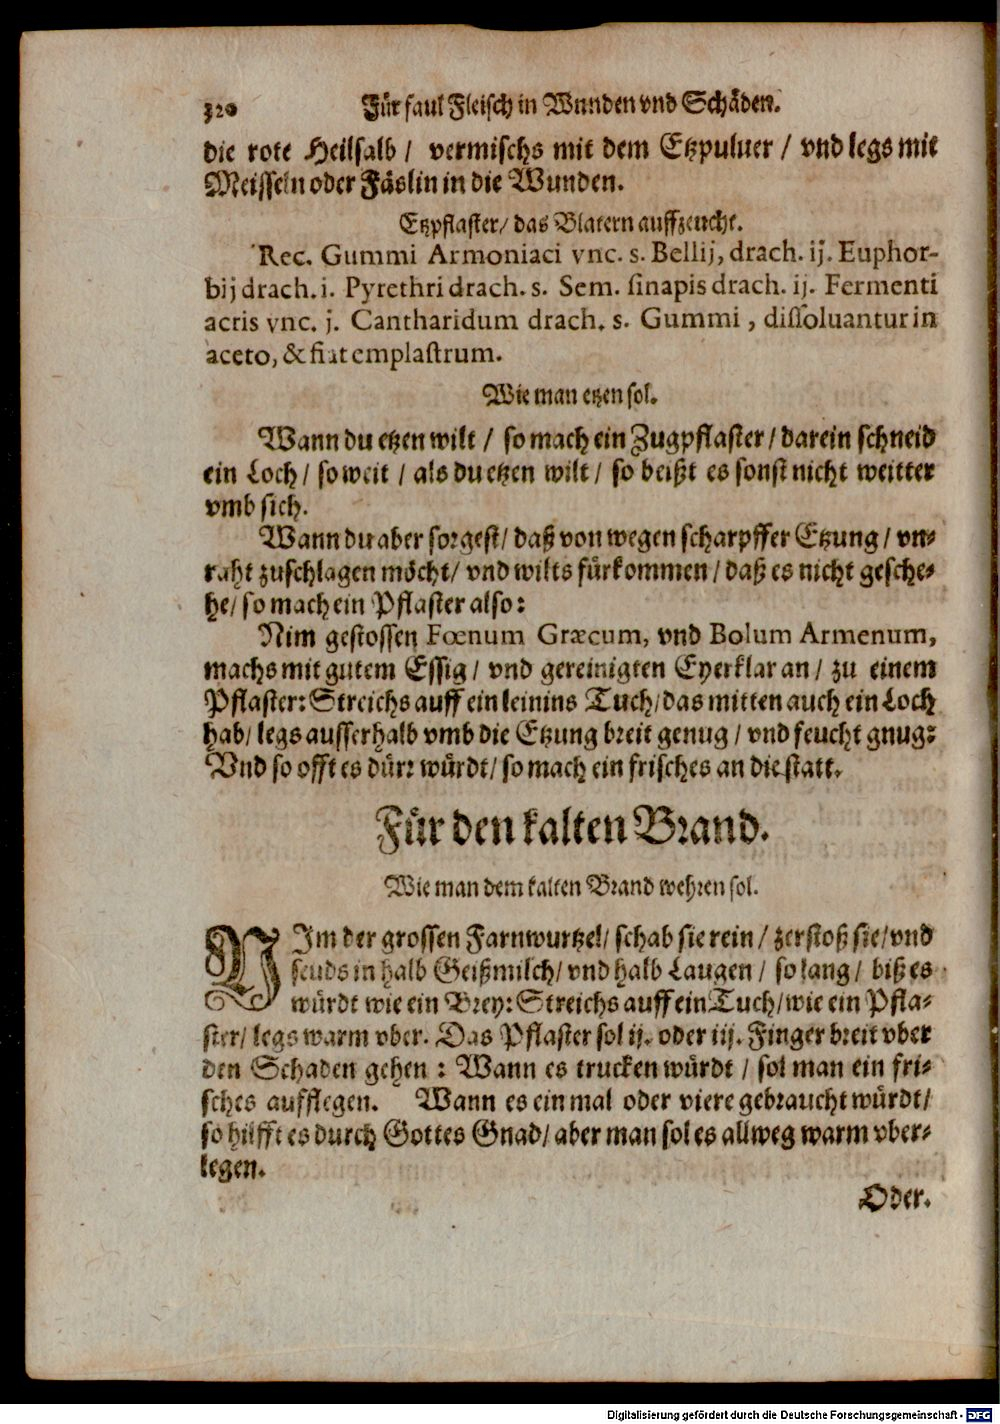 320 Für faul Fleisch in Wunden vnd Schäden.
die rote Heilsalb / vermischs mit dem Etzpuluer / vnd legs mit
Meisseln oder Fäslin in die Wunden.
Etzpflaster / das Blatern auffzeucht.
Rec. Gummi Armoniaci vnc. s. Bellij, drach. ij. Euphor-
bij drach. i. Pyrethri drach. s. Sem. sinapis drach. ij. Fermenti
acris vnc. j. Cantharidum drach. s. Gummi, dissoluantur in
aceto, & fiat emplastrum.
Wie man etzen sol.
Wann du etzen wilt / so mach ein Zugpflaster / darein schneid
ein Loch / so weit / als du etzen wilt / so beißt es sonst nicht weitter
vmb sich.
Wann du aber sorgest / daß von wegen scharpffer Etzung / vn-
raht zuschlagen möcht / vnd wilts fürkommen / daß es nicht gesche-
he / so mach ein Pflaster also:
Nim gestossen Fœnum Græcum, vnd Bolum Armenum,
machs mit gutem Essig / vnd gereinigten Eyerklar an / zu einem
Pflaster: Streichs auff ein leinins Tuch / das mitten auch ein Loch
hab / legs ausserhalb vmb die Etzung breit genug / vnd feucht gnug:
Vnd so offt es dürr würdt / so mach ein frisches an die statt.
Für den kalten Brand.
Wie man dem kalten Brand wehren sol.
NIm der grossen Farnwurtzel / schab sie rein / zerstoß sie / vnd
seuds in halb Geißmilch / vnd halb Laugen / so lang / biß es
würdt wie ein Brey: Streichs auff ein Tuch / wie ein Pfla-
ster / legs warm vber. Das Pflaster sol ij. oder iij. Finger breit vber
den Schaden gehen: Wann es trucken würdt / sol man ein fri-
sches aufflegen. Wann es ein mal oder viere gebraucht würdt /
so hilfft es durch Gottes Gnad / aber man sol es allweg warm vber-
legen.
Oder.
Digitalisierung gefördert durch die Deutsche Forschungsgemeinschaft - DFG